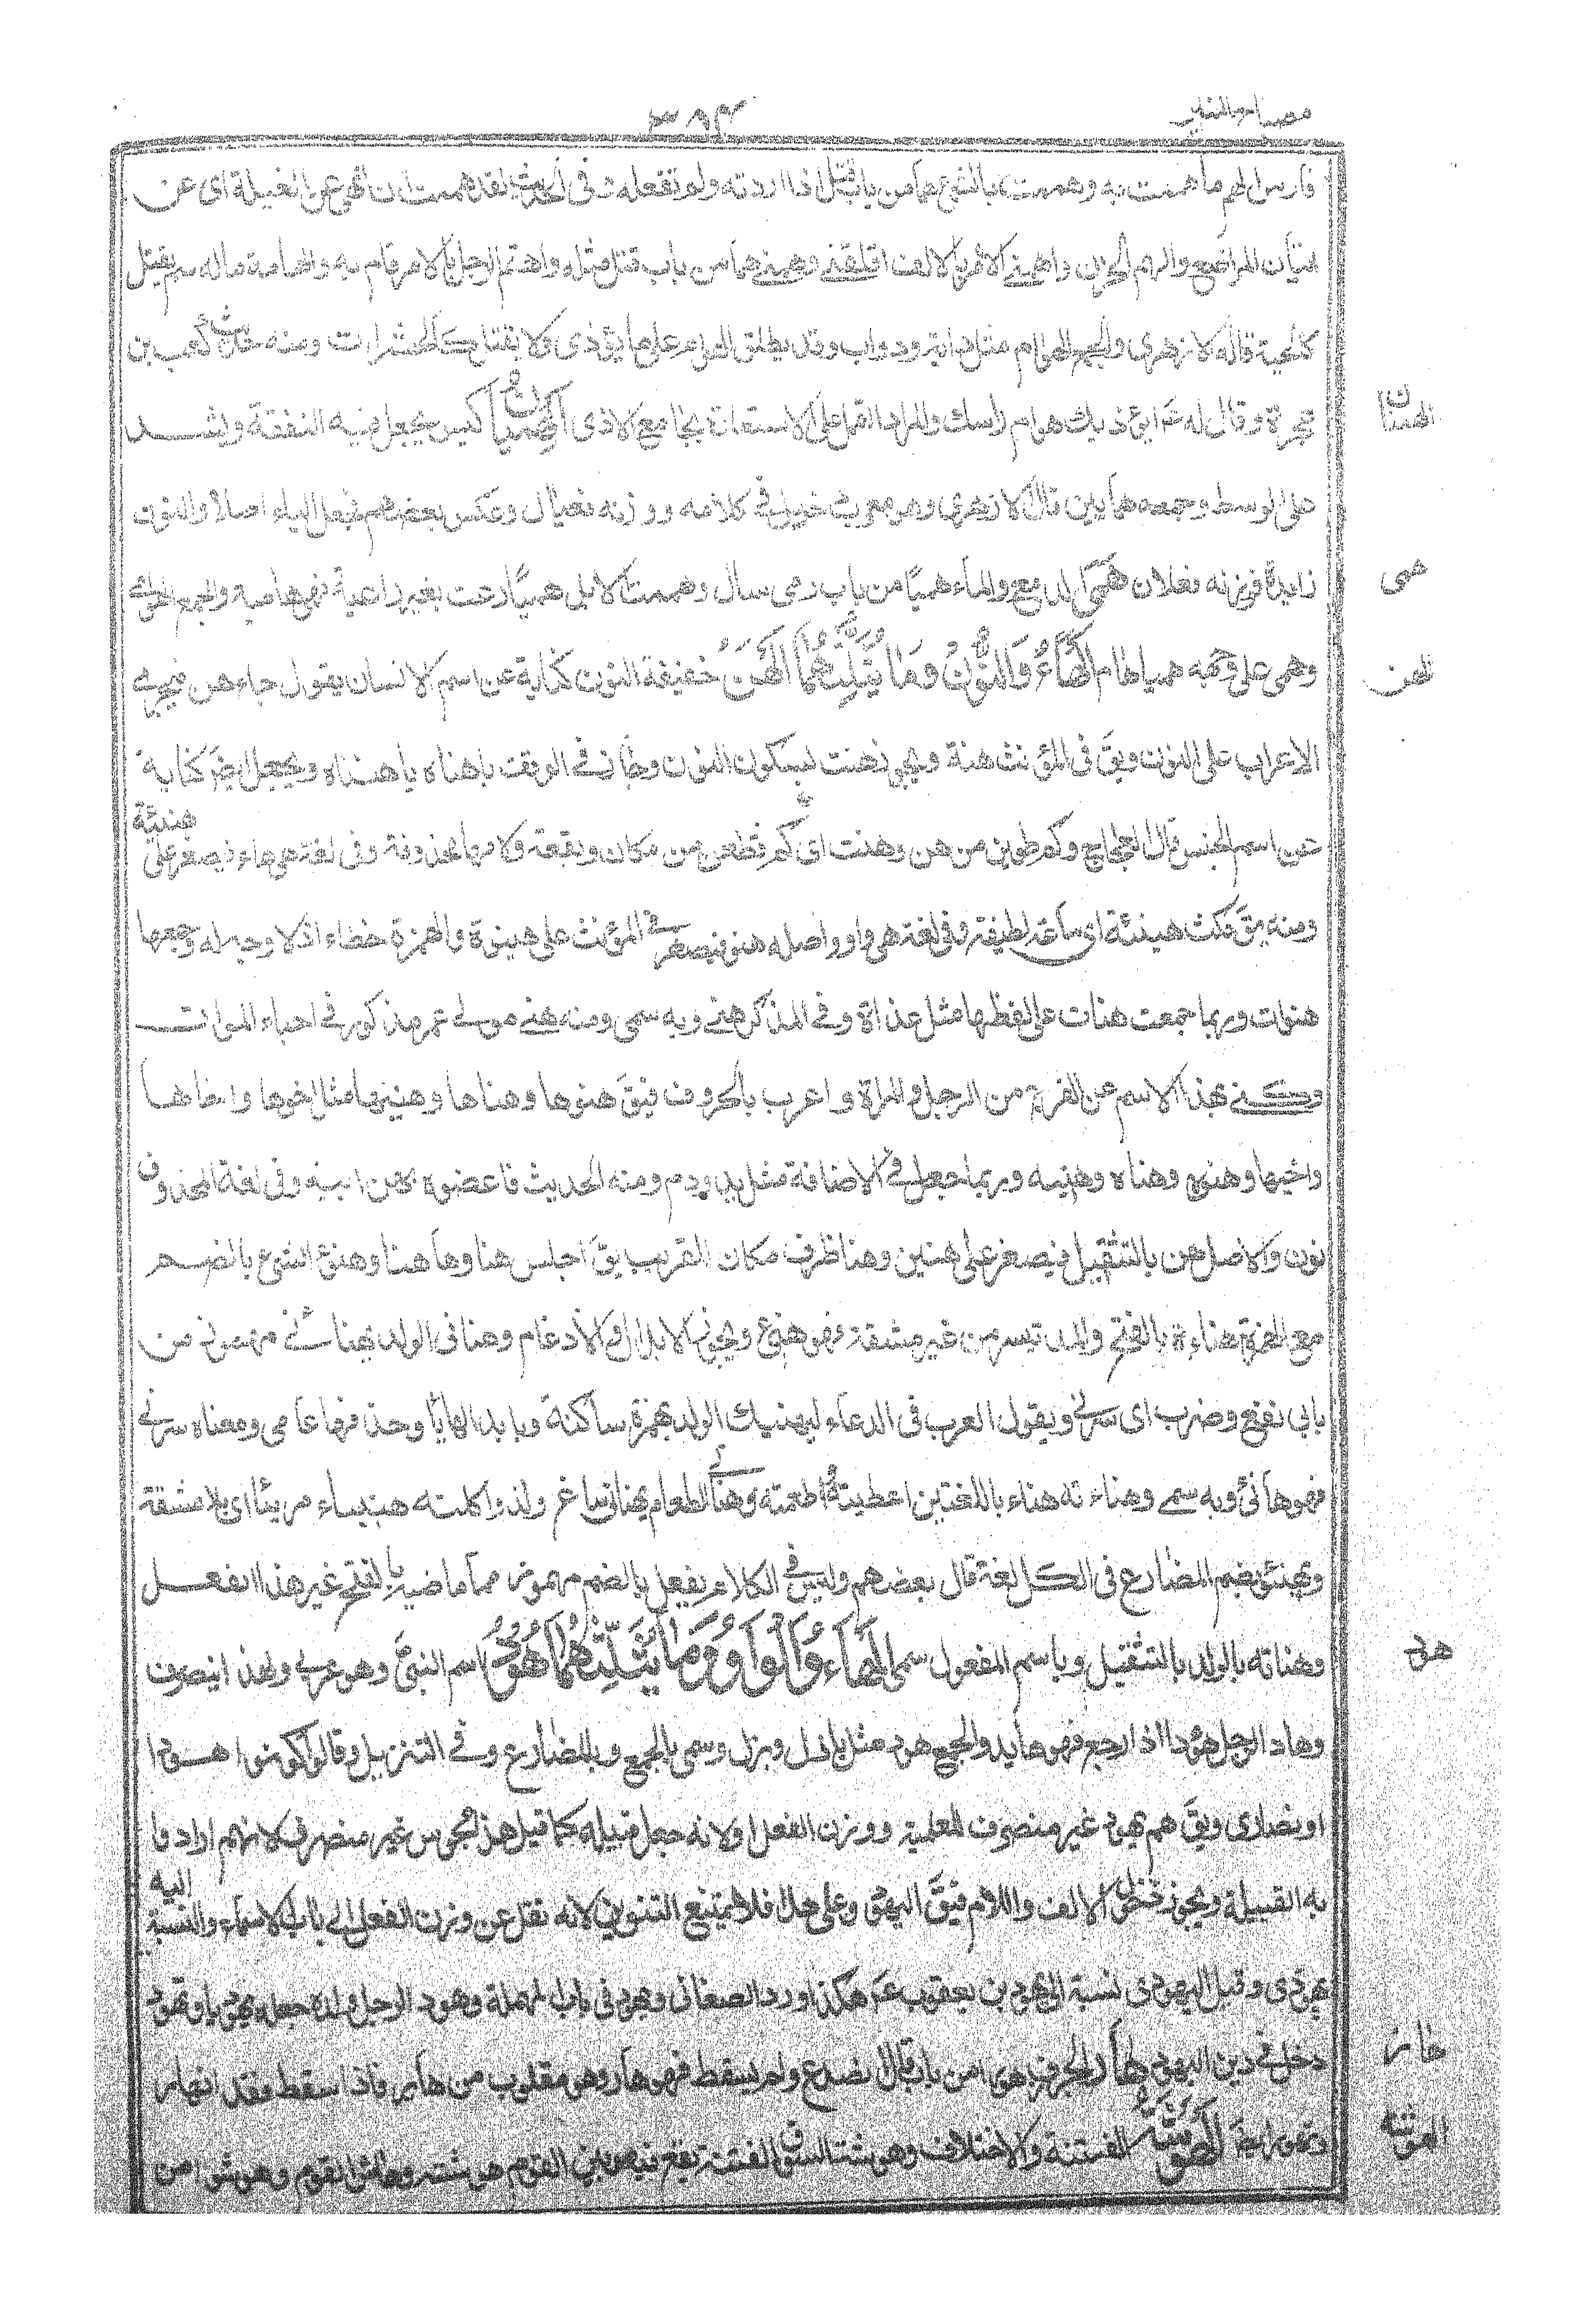 مصباح المنير
٣٨٤
فارس الهم ما هممت به وهممت بالشئ هما من باب قتل اذا اردته ولم تفعله وفى الحديث لقد هممت ان انهى عن الغيلة اى عن
اتيان المراضع والهم الحزن واهمنى الامر بالالف اقلقنى وهمنى هما من باب قتل مثله واهتم الرجل بالامر قام به والهامة ماله سم يقتل
كالحية قاله الازهرى والجمع الهوام مثل دابة ودواب وقد يطلق الهوام على ما يؤذى ولا يقتل كالحشرات ومنه حديث كعب بن
عجرة وقال له ع ايؤذيك هوام راسك والمراد القمل على الاستعارة بجامع الاذى الهميان كيس يجعل فيه النفقة ويشد
الهميان
على الوسط وجمعه همايين قال الازهرى وهو معرب دخيل فى كلامهم ووزنه فعيال وعكس بعضهم فجعل الياء اصلا والنون
زايدة فوزنه فعلان همى الدمع والماء هميا من باب رمى سال وهمت الابل هميا رعت بغير راعية فهى هامية والجمع الهوامى
همى
وهمى على وجهه هميا هام الهاء والنون وما يثلثهما الهن خفيفة النون كناية عن اسم الانسان يقول جاء هن فيجرى
الهن
الاعراب على النون ويق فى المؤنث هنة ويجوز هنت بسكون النون وجاز فى الوقف ياهناه ياهنتاه ويجعل ايض كناية
عن اسم الجنس قال العجاج وكم طوين من هن وهنت اى كم قطعن من مكان وبقعة ولامها محذوفة وفى لغة هى هاء فيصغر على هنيئة
ومنه يق مكث هنيئة اى ساعة لطيفة وفى لغة هى واو واصله هنو فيصغر فى المؤنث على هنيوة والهمزة خطاء اذ لا وجه له وجمعها
هنوات وربما جمعت هنات على لفظها مثل عداة وفى المذكر هنى وبه سمى ومنه هنى مولى عمر مذكور فى احياء الموات
وكنى بهذا الاسم عن الفرج من الرجل والمراة واعرب بالحروف فيق هنوها وهناها وهنيها مثل اخوها واخاها
واخيها وهنوه وهناه وهنيه وربما جعل فى الاضافة مثل يد ودم ومنه الحديث فاعضوه بهن ابيه وفى لغة المحذوف
نون والاصل هن بالتثقيل فيصغر على هنين وهنا ظرف مكان القريب يق اجلس هنا وها هنا وهنؤ الشئ بالضم
مع الهمزة هناءة بالفتح والمد تيسر من غير مشقة فهو هنئ ويجوز الابدال والادغام وهنانى الولد يهنانى مهموز من
بابى نفع وضرب اى سرنى ويقول العرب فى الدعاء ليهنيك الولد بهمزة ساكنة وبابدالها يا وحذفها عامى ومعناه سرنى
فهو هانئ وبه سمى وهناءته هناء باللغتين اعطيته او اطعمته وهنانى الطعام يهنانى ساغ ولذ واكلته هنيئاء مريئا اى بلا مشقة
ويهنئ بضم المضارع فى الكل لغة قال بعضهم وليس فى الكلام يفعل بالضم مهموز مما ماضيه بالفتح غير هذا الفعل
وهناته بالولد بالتثقيل وباسم المفعول سمى الهاء والواو وما يثلثهما هود اسم النبى وهو عربى ولهذا ينصرف
هود
وهاد الرجل هودا اذا رجع فهو هايد والجمع هود مثل بازل وبزل وسمى بالجمع وبالمضارع وفى التنزيل وقالوا كونوا هودا
او نصارى ويق هم يهود غير منصرف للعلمية ووزن الفعل ولانه جعل قبيله كما قيل هذا مجوس غير منصرف لانهم ارادوا
به القبيلة ويجوز دخول الالف واللام فيق اليهود وعلى هذا فلا يمتنع التنوين لانه نقل عن وزن الفعل الى باب الاسماء والنسبة اليه
يهودى وقيل اليهودى نسبة الى يهود بن يعقوب ع هكذا اورد الصغانى ويهود فى باب المهملة وهود الرجل ولده جعله يهوديا وتهود
دخل فى دين اليهود هار الجرف هورا من باب قال تصدع ولم يسقط فهو هار وهو مقلوب من هاير فاذا سقط فقد انهار
هار
وتهور ايض الهوشة الفتنة والاختلاف وهوشة السوق الفتنة تقع فيه وبين القوم هوشة وهاش القوم وهوشوا من
الهوشة